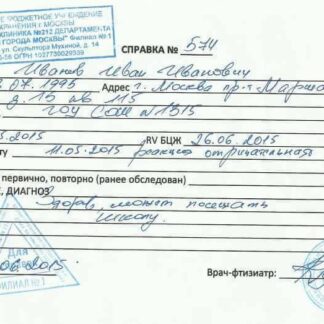 Е БЮДЖЕТНОЕ УЧРЕЖДЕНИЕ
ХРАНЕНИЯ г. МОСКВЫ
КЛИНИКА №212 ДЕПАРТАМЕНТА
ГОРОДА МОСКВЫ" Филиал №1
ул. Скульптора Мухиной, д. 14
СПРАВКА № 574
Иванов Иван Иванович
.07.1995 Адрес г. Москва пр-т Марша
д. 13 кв 115
ГОУ СОШ №1315
.2015 RV БЦЖ 26.06.2015
11.05.2015 реакция отрицательная
первично, повторно (ранее обследован)
, ДИАГНОЗ
Здоров, может посещать
школу.
Для
.06.2015
ФИЛИАЛ №1
Врач-фтизиатр: